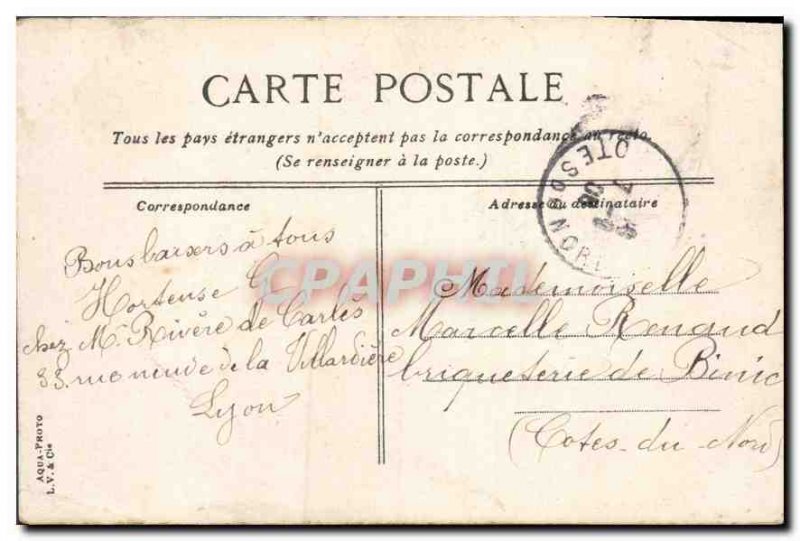 CARTE POSTALE
Tous les pays étrangers n'acceptent pas la correspondance au recto
(Se renseigner à la poste.)
Correspondance
Adresse du destinataire
Bons baisers à tous
Hortense G
chez Mr Rivère de Carlès
33 rue neuve de la Villardière
Lyon
Mademoiselle
Marcelle Renaud
briqueterie de Binic
(Cotes-du-Nord)
AQUA-PHOTO
L.V. & Cie
OTES
NOR
CPAPHIL